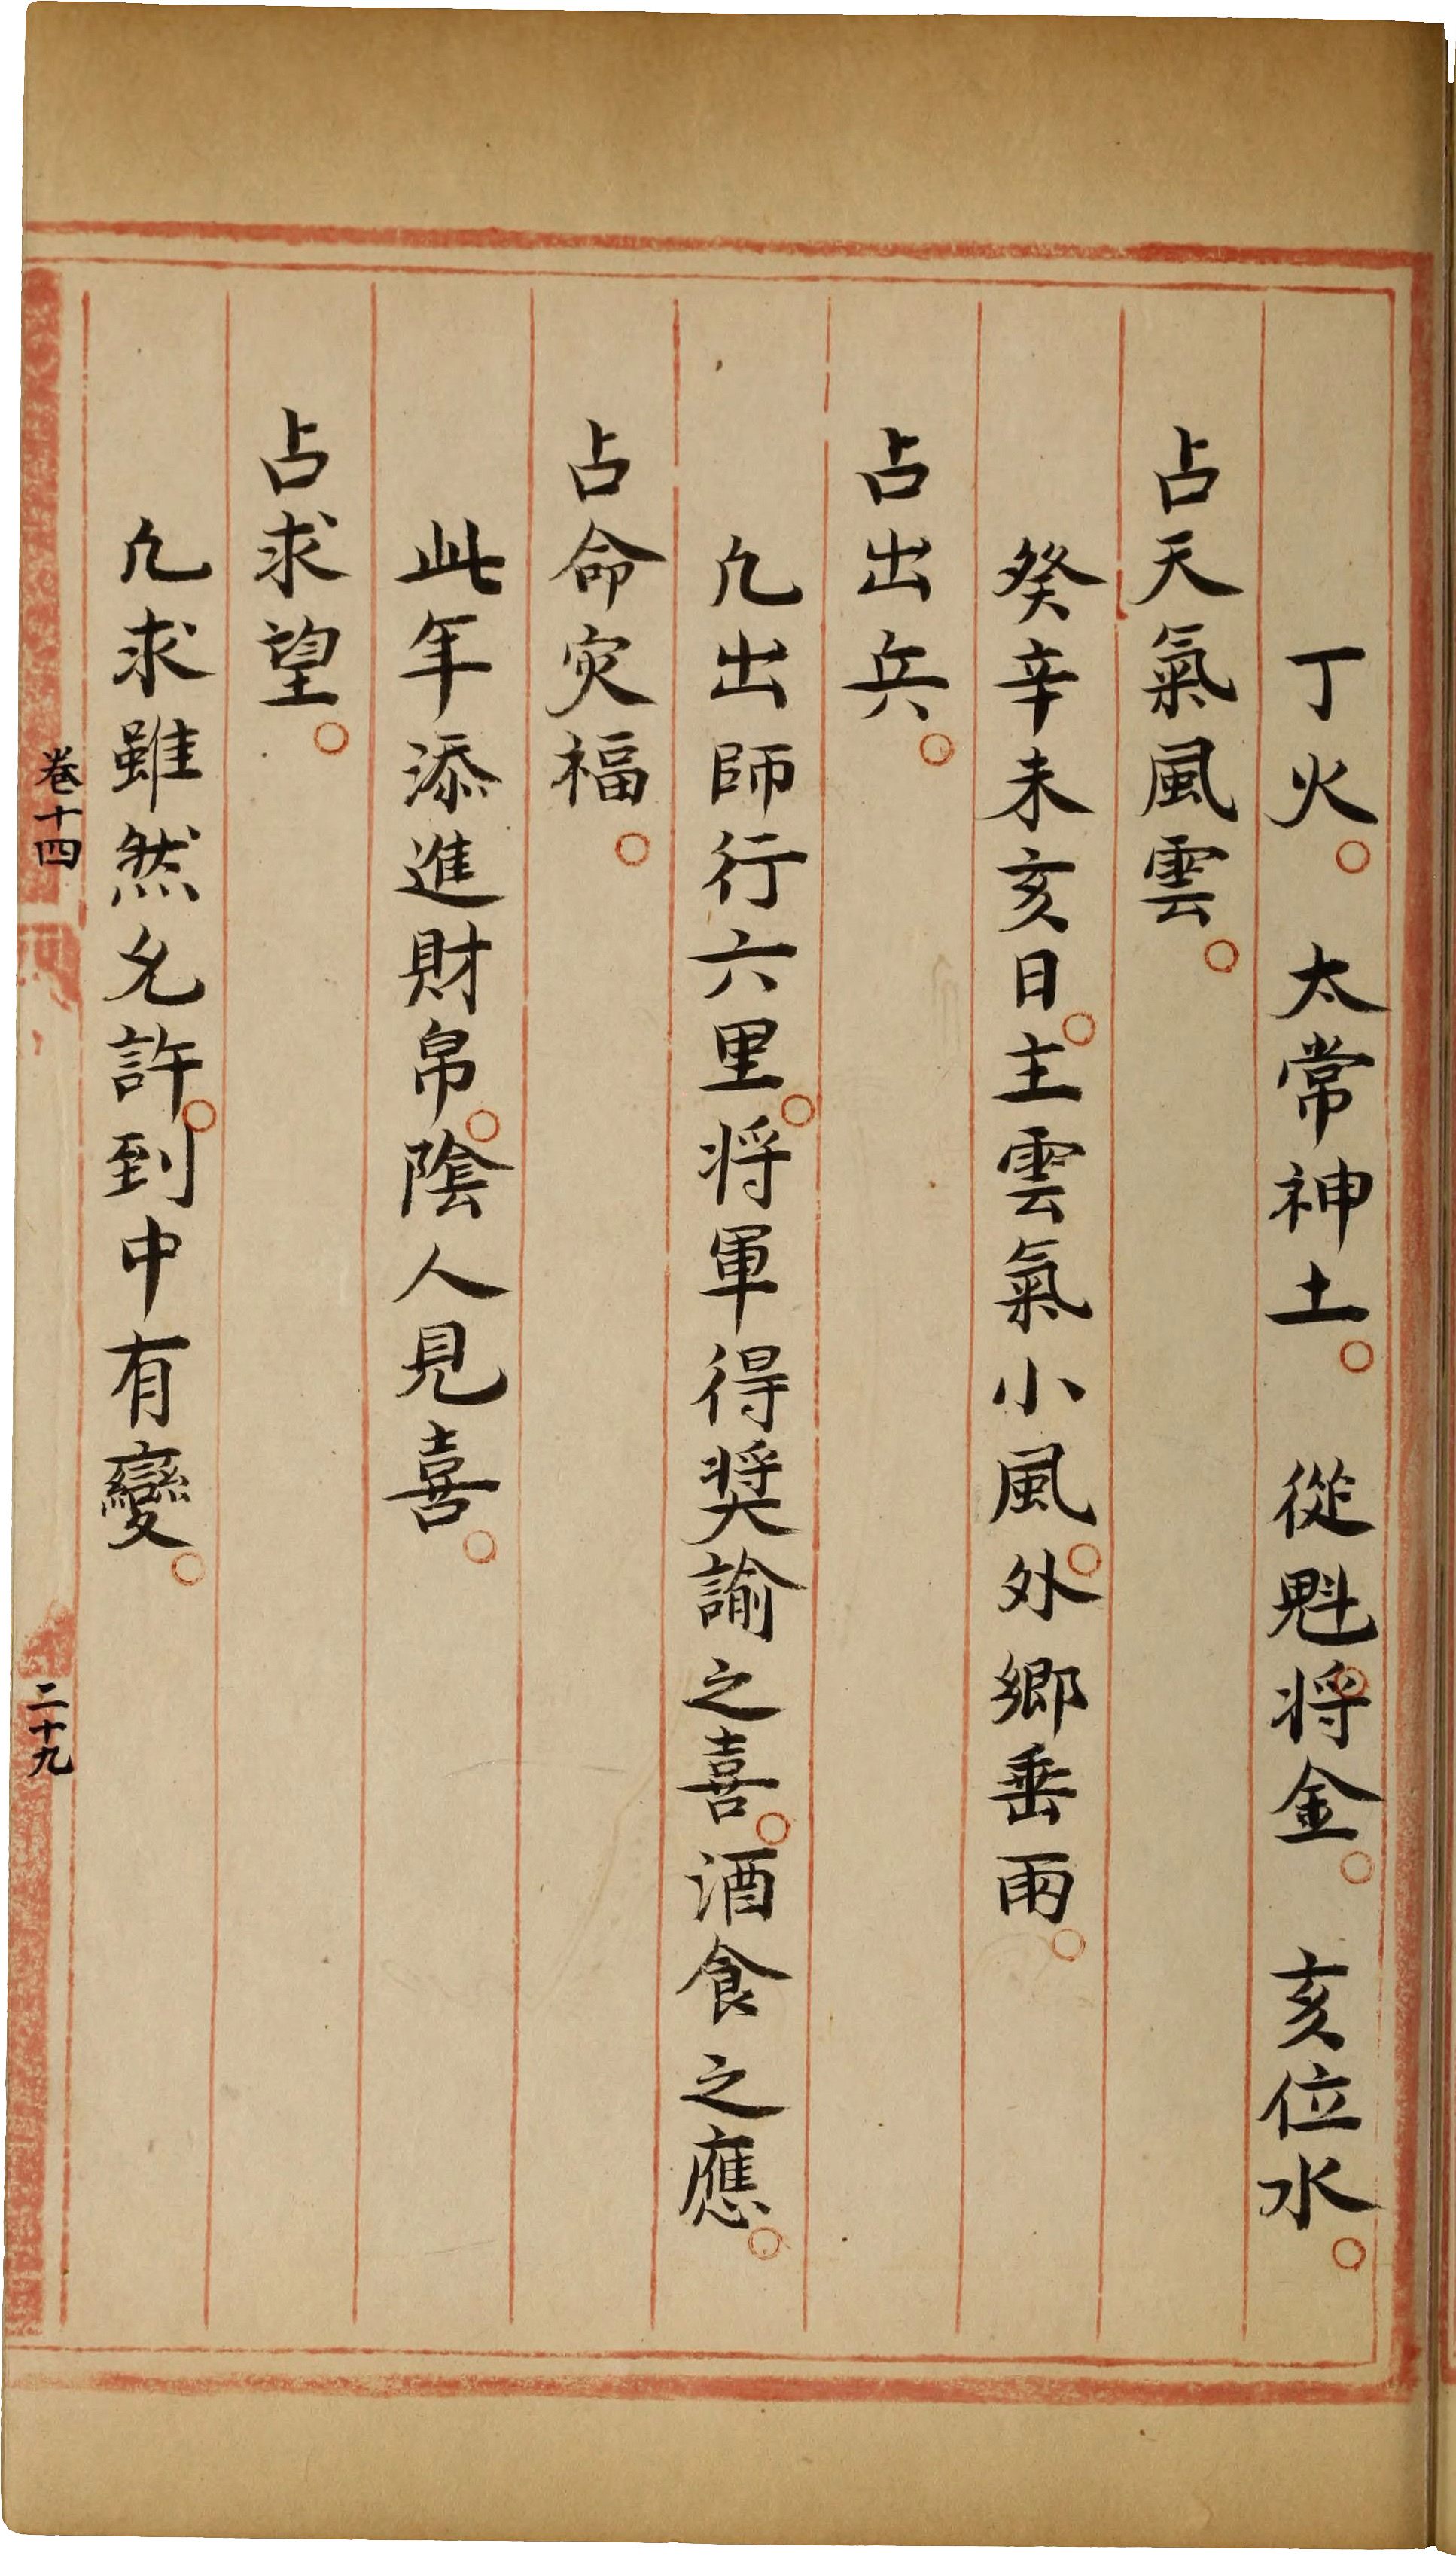 丁火。　太常神土。　從魁。將金。　亥位水。
占天氣風雲。
癸辛未亥日。主雲氣小風。外鄉垂雨。
占出兵。
凢出師行六里。将軍得奨諭之喜。酒食之應。
占命灾福。
此年添進財帛。陰人見喜。
占求望。
凢求雖然允許。到中有變。
卷十四
二十九